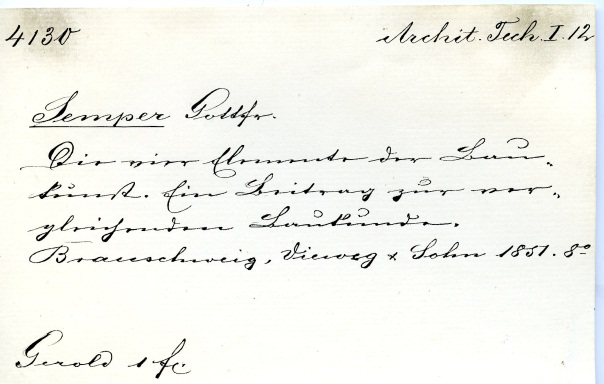 4130
Archit. Tech. I. 12
Semper Gottfr.
Die vier Elemente der Bau-
kunst. Ein Beitrag zur ver-
gleichenden Baukunde.
Braunschweig, Vieweg & Sohn 1851. 8°
Gerold 1 fl.